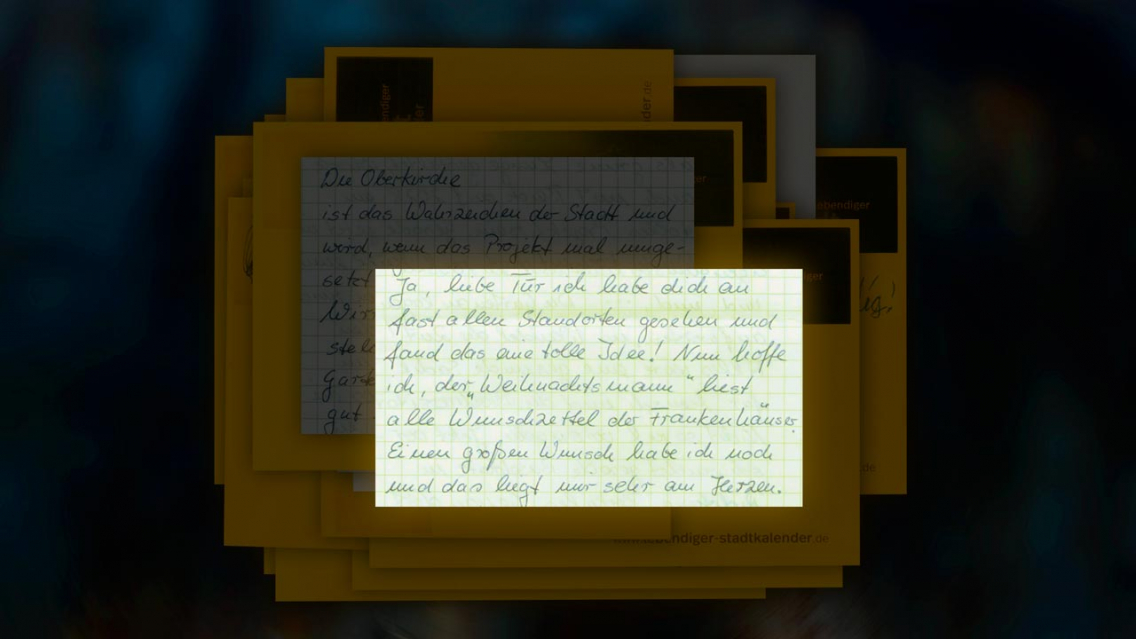 Die Oberkirche
ist das Wahrzeichen der Stadt und
wird, wenn das Projekt mal umge-
setzt
gut
Ja, liebe Tür ich habe dich an
fast allen Standorten gesehen und
fand das eine tolle Idee! Nun hoffe
ich, der „Weihnachtsmann“ liest
alle Wunschzettel der Frankenhäuser.
Einen großen Wunsch habe ich noch
und das liegt mir sehr am Herzen.
lebendiger-stadtkalender.de